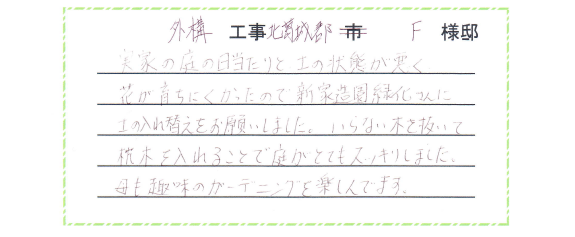 外構 工事 北葛城郡 市 F 様邸
実家の庭の日当たりと土の状態が悪く
花が育ちにくかったので新家造園緑化さんに
土の入れ替えをお願いしました。いらない木を抜いて
枕木を入れることで庭がとてもスッキリしました。
母も趣味のガーデニングを楽しんでます。